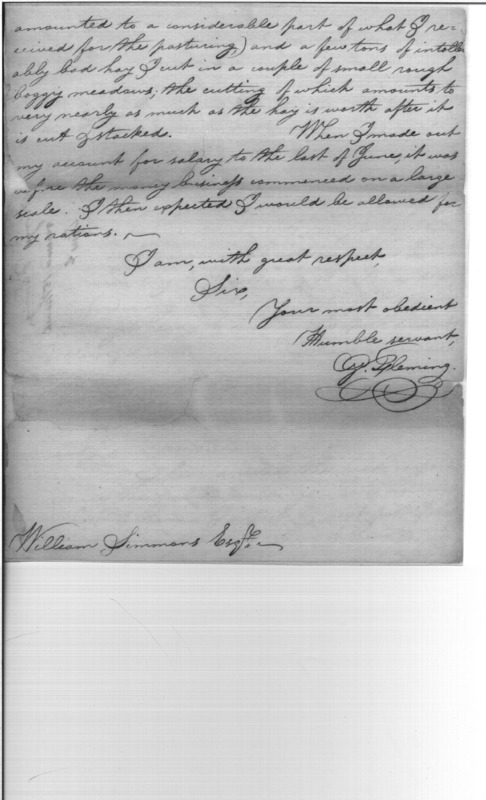 amounted to a considerable part of what I re-
ceived for the pasturing) and a few tons of intoller
ably bad hay I cut in a couple of small rough
boggy meadows; the cutting of which amounts to
very nearly as much as the hay is worth after it
is cut & stacked. When I made out
my account for salary to the last of June, it was
before the money business commenced on a large
scale. I then expected I would be allowed for
my rations. —
I am, with great respect,
Sir,
Your most obedient
Humble servant,
G. Fleming.
William Simmons Esqr.